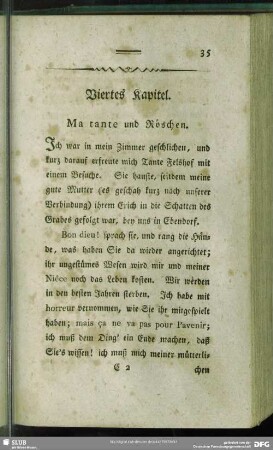 35
Viertes Kapitel.
Ma tante und Röschen.
Ich war in mein Zimmer geschlichen, und
kurz darauf erfreute mich Tante Felshof mit
einem Besuche. Sie hauste, seitdem meine
gute Mutter (es geschah kurz nach unserer
Verbindung) ihrem Erich in die Schatten des
Grabes gefolgt war, bey uns in Ebendorf.
Bon dieu! sprach sie, und rang die Hän-
de, was haben Sie da wieder angerichtet;
ihr ungestümes Wesen wird mir und meiner
Niéce noch das Leben kosten. Wir werden
in den besten Jahren sterben. Ich habe mit
horreur vernommen, wie Sie ihr mitgespielt
haben; mais ça ne va pas pour l'avenir;
ich muß dem Ding' ein Ende machen, daß
Sie's wissen! ich muß mich meiner mütterli-
C 2 chen
SLUB
DFG